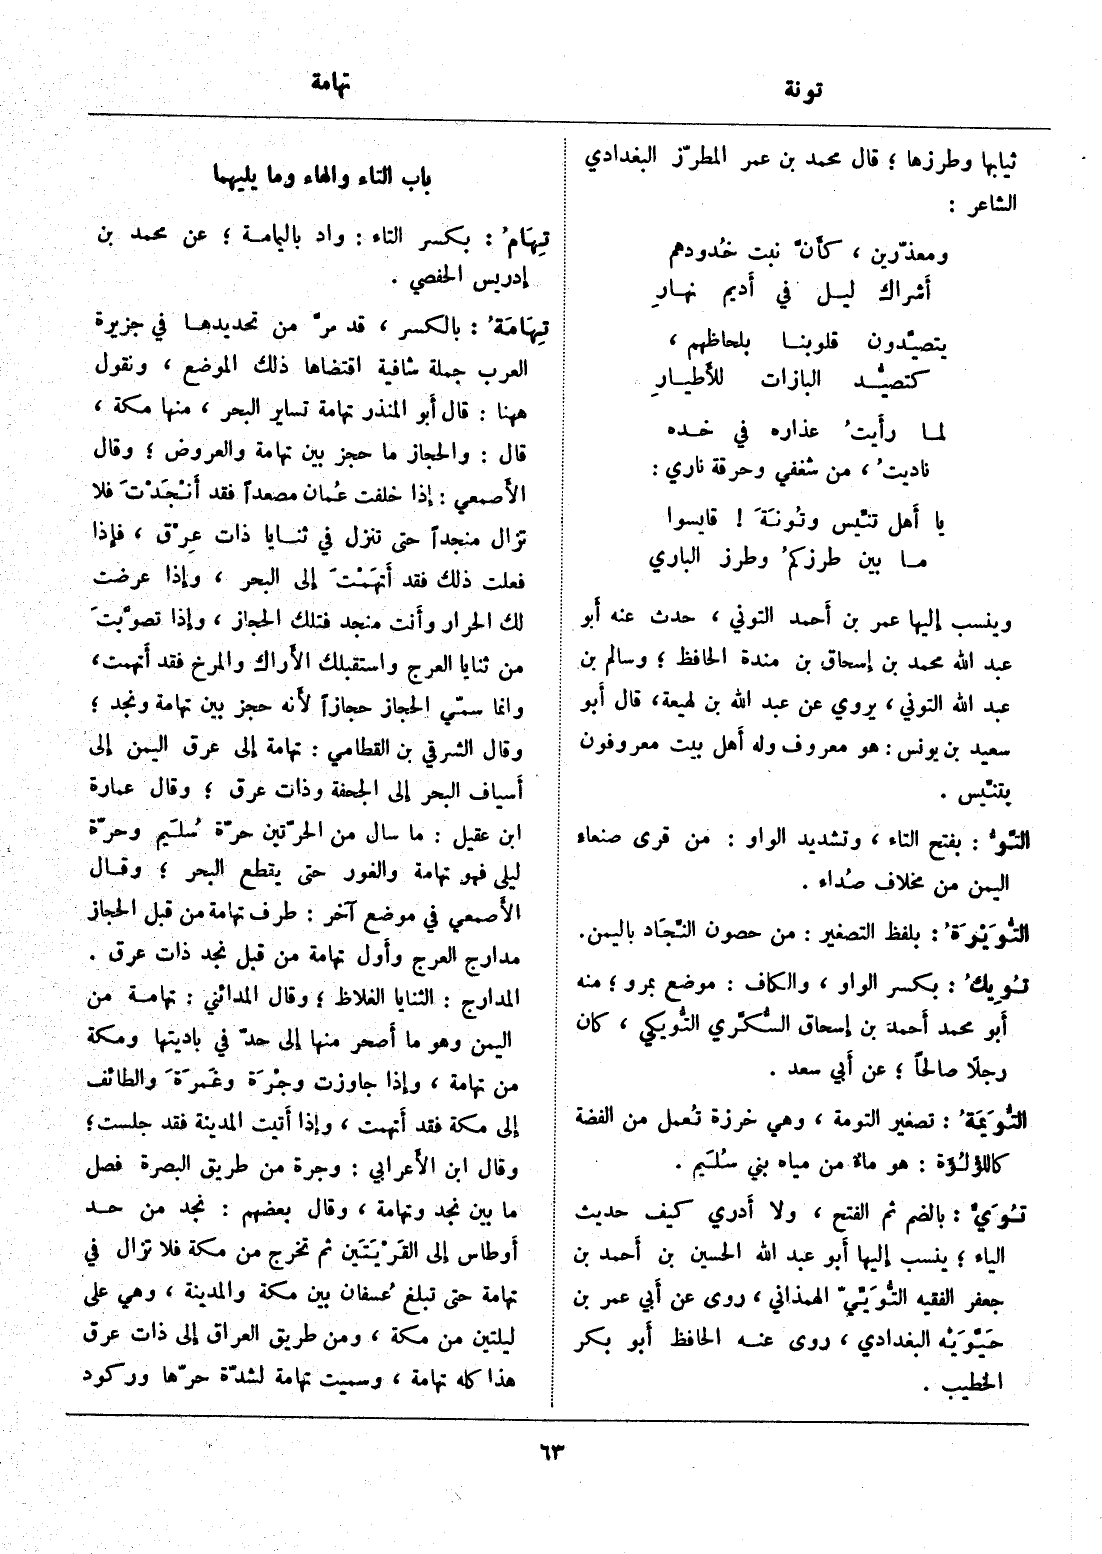 تونة
تهامة
ثيابها وطرزها ؛ قال محمد بن عمر المطرّز البغدادي
الشاعر :
ومعذّرين ، كأنَّ نبت خُدودهم
أشراك ليـل في أديم نهـارِ
يتصيّدون قلوبنـا بلحاظهم ،
كتصيُّـد البازات للأطيـارِ
لمـا رأيتُ عذاره في خـده
ناديتُ ، من شغفي وحرقة ناري :
يا أهل تنّيس وتُونَةَ ! قايسوا
مـا بين طرزكمُ وطرز الباري
وينسب إليها عمر بن أحمد التوني ، حدث عنه أبو
عبد الله محمد بن إسحاق بن مندة الحافظ ؛ وسالم بن
عبد الله التوني ، يروي عن عبد الله بن لهيعة ، قال أبو
سعيد بن يونس : هو معروف وله أهل بيت معروفون
بتنّيس .
التَّوُّ : بفتح التاء ، وتشديد الواو : من قرى صنعاء
اليمن من مخلاف صُداء .
التُّوَيْرَةُ : بلفظ التصغير : من حصون النّجاد باليمن.
تَوِيكُ : بكسر الواو ، والكاف : موضع بمرو ؛ منه
أبو محمد أحمد بن إسحاق السُّكّري التُّويكي ، كان
رجلًا صالحاً ؛ عن أبي سعد .
التُّوَيمَةُ : تصغير التومة ، وهي خرزة تُعمل من الفضة
كاللؤلُؤة : هو ماءٌ من مياه بني سُلَيم .
تُوَيٌّ : بالضم ثم الفتح ، ولا أدري كيف حديث
الياء ؛ ينسب إليها أبو عبد الله الحسين بن أحمد بن
جعفر الفقيه التُّوَيّيّ الهمذاني ، روى عن أبي عمر بن
حَيَّوَيْه البغدادي ، روى عنـه الحافظ أبو بكر
الخطيب .
باب التاء والهاء وما يليهما
تِهَامُ : بكسر التاء : واد باليامـة ؛ عن محمد بن
إدريس الحفصي .
تِهَامَةُ : بالكسر ، قد مرَّ من تحديدهـا في جزيرة
العرب جملة شافية اقتضاها ذلك الموضع ، ونقول
ههنا : قال أبو المنذر تهامة تساير البحر ، منها مكة ،
قال : والحجاز ما حجز بين تهامة والعروض ؛ وقال
الأصمعي : إذا خلفت عُمان مصعداً فقد أنْجَدْتَ فلا
تزال منجداً حتى تنزل في ثنـايا ذات عِرْق ، فإذا
فعلت ذلك فقد أتهَمْتَ إلى البحر ، وإذا عرضت
لك الحرار وأنت منجد فتلك الحجاز ، وإذا تصوّبتَ
من ثنايا العرج واستقبلك الأراك والمرخ فقد أتهمت،
وانما سمّي الحجاز حجازاً لأنه حجز بين تهامة ونجد ؛
وقال الشرقي بن القطامي : تهامة إلى عرق اليمن إلى
أسياف البحر إلى الجحفة وذات عرق ؛ وقال عمارة
ابن عقيل : ما سال من الحرّتين حرّة سُلَيم وحرّة
ليلى فهو تهامة والغور حتى يقطع البحر ؛ وقـال
الأصمعي في موضع آخر : طرف تهامة من قبل الحجاز
مدارج العرج وأول تهامة من قبل نجد ذات عرق .
المدارج : الثنايا الغلاظ ؛ وقال المدائني : تهامـة من
اليمن وهو ما أصحر منها إلى حدّ في باديتها ومكة
من تهامة ، وإذا جاوزت وجْرَة وغَمرَةَ والطائف
إلى مكة فقد أتهمت ، وإذا أتيت المدينة فقد جلست؛
وقال ابن الأعرابي : وجرة من طريق البصرة فصل
ما بين نجد وتهامة ، وقال بعضهم : نجد من حـد
أوطاس إلى القَرْيَتَين ثم تخرج من مكة فلا تزال في
تهامة حتى تبلغ عُسفان بين مكة والمدينة ، وهي على
ليلتين من مكة ، ومن طريق العراق إلى ذات عرق
هذا كله تهامة ، وسميت تهامة لشدّة حرّها وركود
٦٣